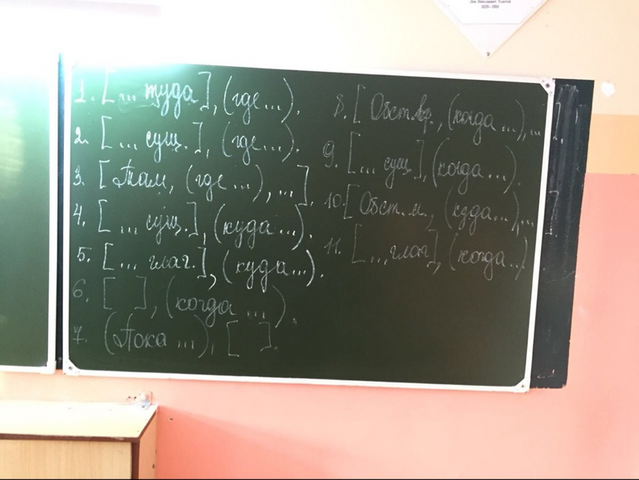 1. [... туда], (где...).
2. [... сущ.], (где...).
3. [Там, (где...), ...].
4. [... сущ.], (куда...).
5. [... глаг.], (куда...).
6. [ ], (когда ...).
7. (Пока ...), [ ].
8. [Обст.вр., (когда...), ...].
9. [... сущ], (когда...).
10. [Обст.м., (куда...), ...]
11. [... глаг], (когда...)